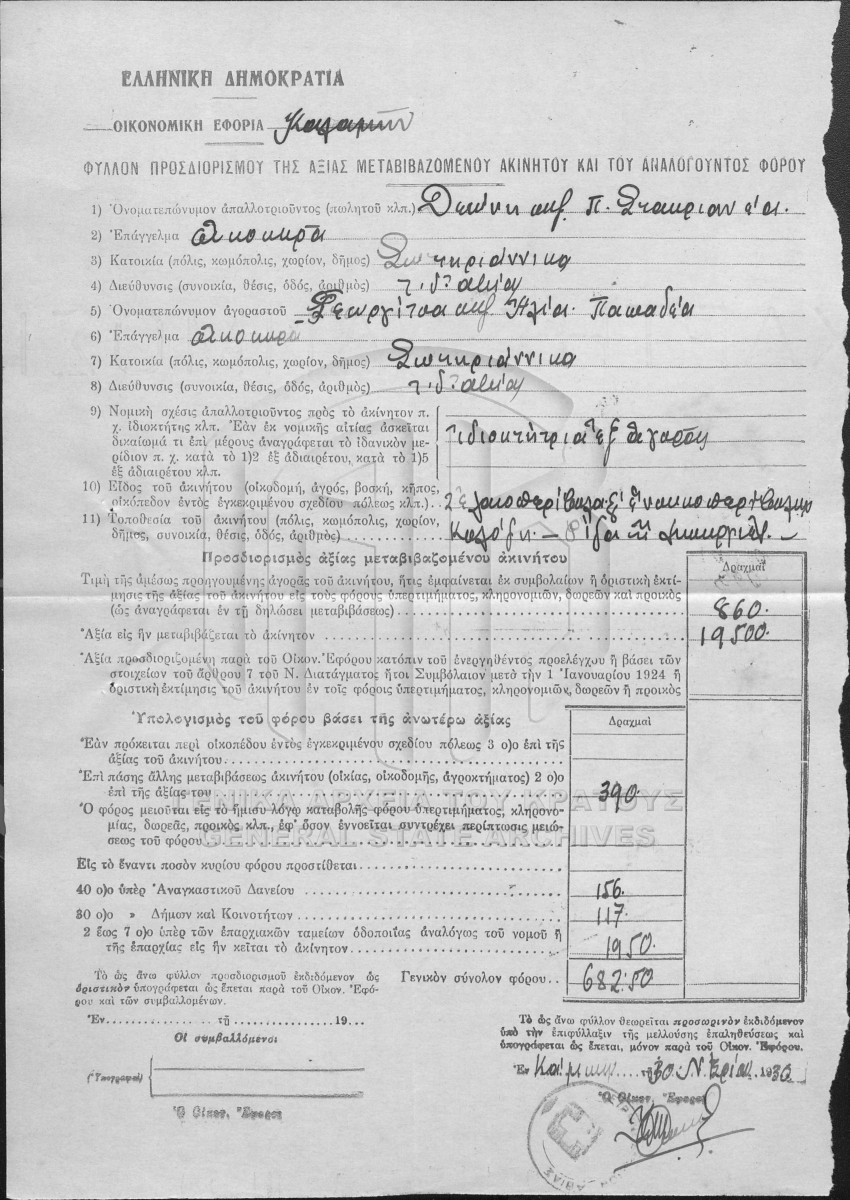 ΕΛΛΗΝΙΚΗ ΔΗΜΟΚΡΑΤΙΑ
ΟΙΚΟΝΟΜΙΚΗ ΕΦΟΡΙΑ
ΦΥΛΛΟΝ ΠΡΟΣΔΙΟΡΙΣΜΟΥ ΤΗΣ ΑΞΙΑΣ ΜΕΤΑΒΙΒΑΖΟΜΕΝΟΥ ΑΚΙΝΗΤΟΥ ΚΑΙ ΤΟΥ ΑΝΑΛΟΓΟΥΝΤΟΣ ΦΟΡΟΥ
1) Ὀνοματεπώνυμον ἀπαλλοτριοῦντος (πωλητοῦ κλπ.) Π.
2) Ἐπάγγελμα οἰκοκυρὰ
3) Κατοικία (πόλις, κωμόπολις, χωρίον, δῆμος) Σωτηριάννικα
4) Διεύθυνσις (συνοικία, θέσις, ὁδός, ἀριθμὸς)
5) Ὀνοματεπώνυμον ἀγοραστοῦ Γεωργίτσα Ἠλία Παπαδέα
6) Ἐπάγγελμα οἰκοκυρὰ
7) Κατοικία (πόλις, κωμόπολις, χωρίον, δῆμος) Σωτηριάννικα
8) Διεύθυνσις (συνοικία, θέσις, ὁδός, ἀριθμὸς)
9) Νομικὴ σχέσις ἀπαλλοτριοῦντος πρὸς τὸ ἀκίνητον π.
χ. ἰδιοκτήτης κλπ. Ἐὰν ἐκ νομικῆς αἰτίας ἀσκεῖται
δικαίωμα τι ἐπὶ μέρους ἀναγράφεται τὸ ἰδανικὸν με-
ρίδιον π. χ. κατὰ τὸ 1)2 ἐξ ἀδιαιρέτου, κατὰ τὸ 1)5
ἐξ ἀδιαιρέτου κλπ.
ἰδιοκτήτρια ἐξ ἀγορᾶς
10) Εἶδος τοῦ ἀκινήτου (οἰκοδομή, ἀγρός, βοσκή, κῆπος,
οἰκόπεδον ἐντὸς ἐγκεκριμένου σχεδίου πόλεως κλπ.)
11) Τοποθεσία τοῦ ἀκινήτου (πόλις, κωμόπολις, χωρίον,
δῆμος, συνοικία, θέσις, ὁδός, ἀριθμὸς)
Προσδιορισμὸς ἀξίας μεταβιβαζομένου ἀκινήτου
Δραχμαὶ
Τιμὴ τῆς ἀμέσως προηγουμένης ἀγορᾶς τοῦ ἀκινήτου, ἥτις ἐμφαίνεται ἐκ συμβολαίων ἢ ὁριστικὴ ἐκτί-
μησις τῆς ἀξίας τοῦ ἀκινήτου εἰς τοὺς φόρους ὑπερτιμήματος, κληρονομιῶν, δωρεῶν καὶ προικὸς
(ὡς ἀναγράφεται ἐν τῇ δηλώσει μεταβιβάσεως) 860.
Ἀξία εἰς ἣν μεταβιβάζεται τὸ ἀκίνητον 19500.
Ἀξία προσδιοριζομένη παρὰ τοῦ Οἰκον. Ἐφόρου κατόπιν τοῦ ἐνεργηθέντος προελέγχου ἢ βάσει τῶν
στοιχείων τοῦ ἄρθρου 7 τοῦ Ν. Διατάγματος ἤτοι Συμβόλαιον μετὰ τὴν 1 Ἰανουαρίου 1924 ἢ
ὁριστικὴ ἐκτίμησις τοῦ ἀκινήτου ἐν τοῖς φόροις ὑπερτιμήματος, κληρονομιῶν, δωρεῶν ἢ προικὸς
Ὑπολογισμὸς τοῦ φόρου βάσει τῆς ἀνωτέρω ἀξίας
Δραχμαὶ
Ἐὰν πρόκειται περὶ οἰκοπέδου ἐντὸς ἐγκεκριμένου σχεδίου πόλεως 3 ο)ο ἐπὶ τῆς
ἀξίας τοῦ ἀκινήτου
Ἐπὶ πάσης ἄλλης μεταβιβάσεως ἀκινήτου (οἰκίας, οἰκοδομῆς, ἀγροκτήματος) 2 ο)ο
ἐπὶ τῆς ἀξίας του 390.
Ὁ φόρος μειοῦται εἰς τὸ ἥμισυ λόγῳ καταβολῆς φόρου ὑπερτιμήματος, κληρονο-
μίας, δωρεᾶς, προικὸς κλπ., ἐφ' ὅσον ἐννοεῖται συντρέχει περίπτωσις μειώ-
σεως τοῦ φόρου
ΓΕΝΙΚΑ ΑΡΧΕΙΑ ΤΟΥ ΚΡΑΤΟΥΣ
GENERAL STATE ARCHIVES
Εἰς τὸ ἔναντι ποσὸν κυρίου φόρου προστίθεται
40 ο)ο ὑπὲρ Ἀναγκαστικοῦ Δανείου 156.
30 ο)ο » Δήμων καὶ Κοινοτήτων 117.
2 ἕως 7 ο)ο ὑπὲρ τῶν ἐπαρχιακῶν ταμείων ὁδοποιΐας ἀναλόγως τοῦ νομοῦ ἢ
τῆς ἐπαρχίας εἰς ἣν κεῖται τὸ ἀκίνητον 1950.
Γενικὸν σύνολον φόρου 682.50
Τὸ ὡς ἄνω φύλλον προσδιορισμοῦ ἐκδιδόμενον ὡς
ὁριστικὸν ὑπογράφεται ὡς ἕπεται παρὰ τοῦ Οἰκον. Ἐφό-
ρου καὶ τῶν συμβαλλομένων.
Ἐν τῇ 19
Οἱ συμβαλλόμενοι
(Ὑπογραφαὶ)
Ὁ Οἰκον. Ἔφορος
Τὸ ὡς ἄνω φύλλον θεωρεῖται προσωρινὸν ἐκδιδόμενον
ὑπὸ τὴν ἐπιφύλαξιν τῆς μελλούσης ἐπαληθεύσεως καὶ
ὑπογράφεται ὡς ἕπεται, μόνον παρὰ τοῦ Οἰκον. Ἐφόρου.
Ἐν τῇ 30 Ν/βρίου 1930
Ὁ Οἰκον. Ἔφορος